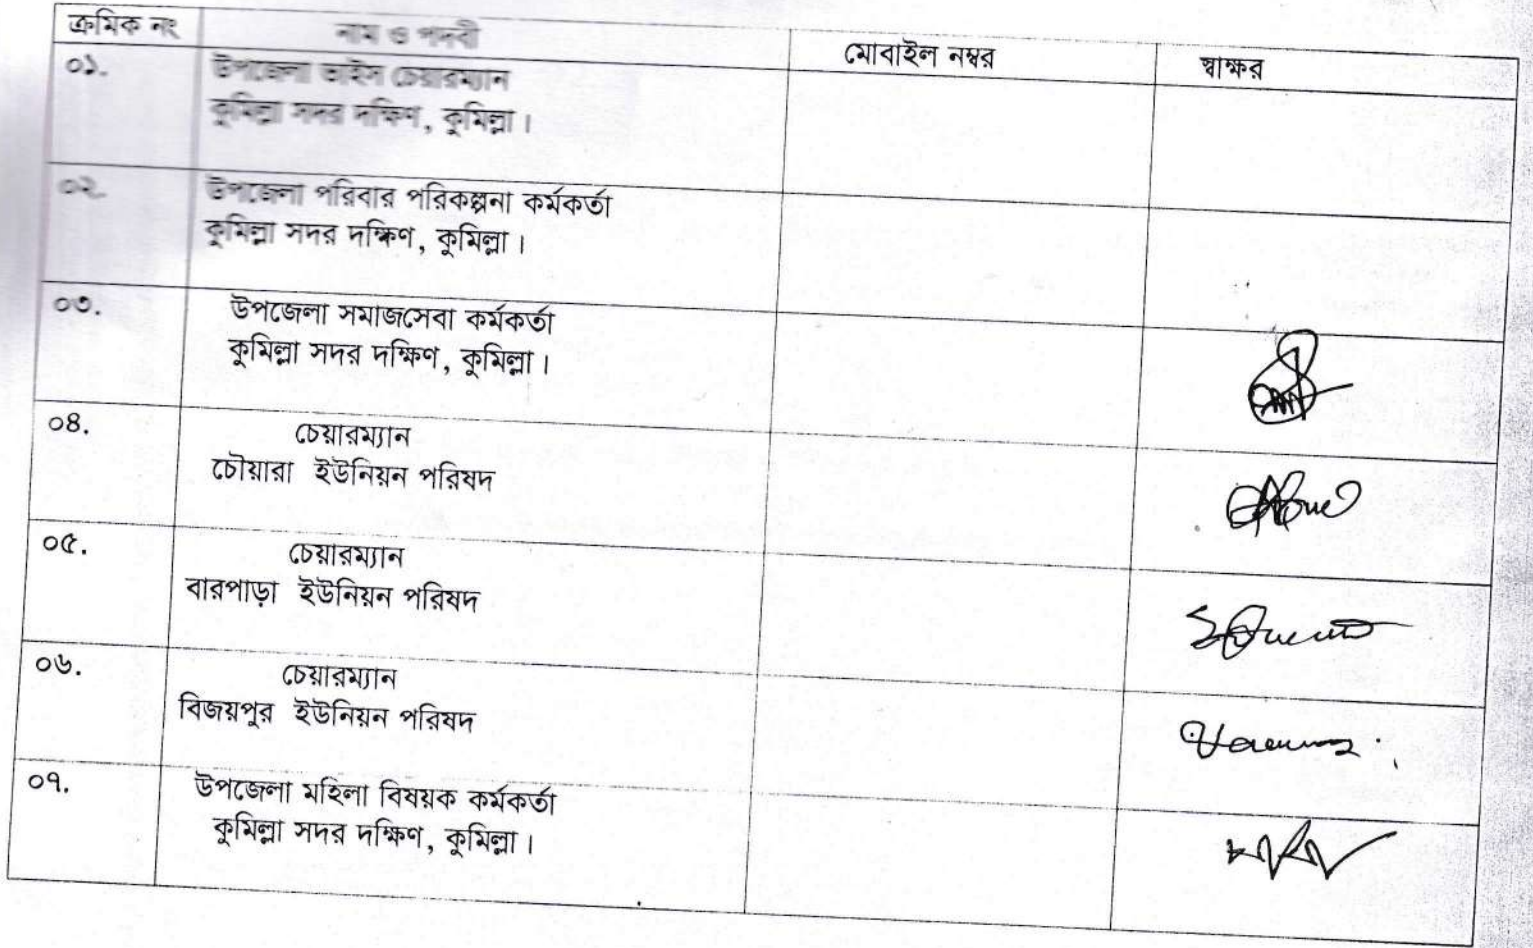 ক্রমিক নং নাম ও পদবী মোবাইল নম্বর স্বাক্ষর
০১. উপজেলা ভাইস চেয়ারম্যান
কুমিল্লা সদর দক্ষিণ, কুমিল্লা।
০২. উপজেলা পরিবার পরিকল্পনা কর্মকর্তা
কুমিল্লা সদর দক্ষিণ, কুমিল্লা।
০৩. উপজেলা সমাজসেবা কর্মকর্তা
কুমিল্লা সদর দক্ষিণ, কুমিল্লা।
০৪. চেয়ারম্যান
চৌয়ারা ইউনিয়ন পরিষদ
০৫. চেয়ারম্যান
বারপাড়া ইউনিয়ন পরিষদ
০৬. চেয়ারম্যান
বিজয়পুর ইউনিয়ন পরিষদ
০৭. উপজেলা মহিলা বিষয়ক কর্মকর্তা
কুমিল্লা সদর দক্ষিণ, কুমিল্লা।